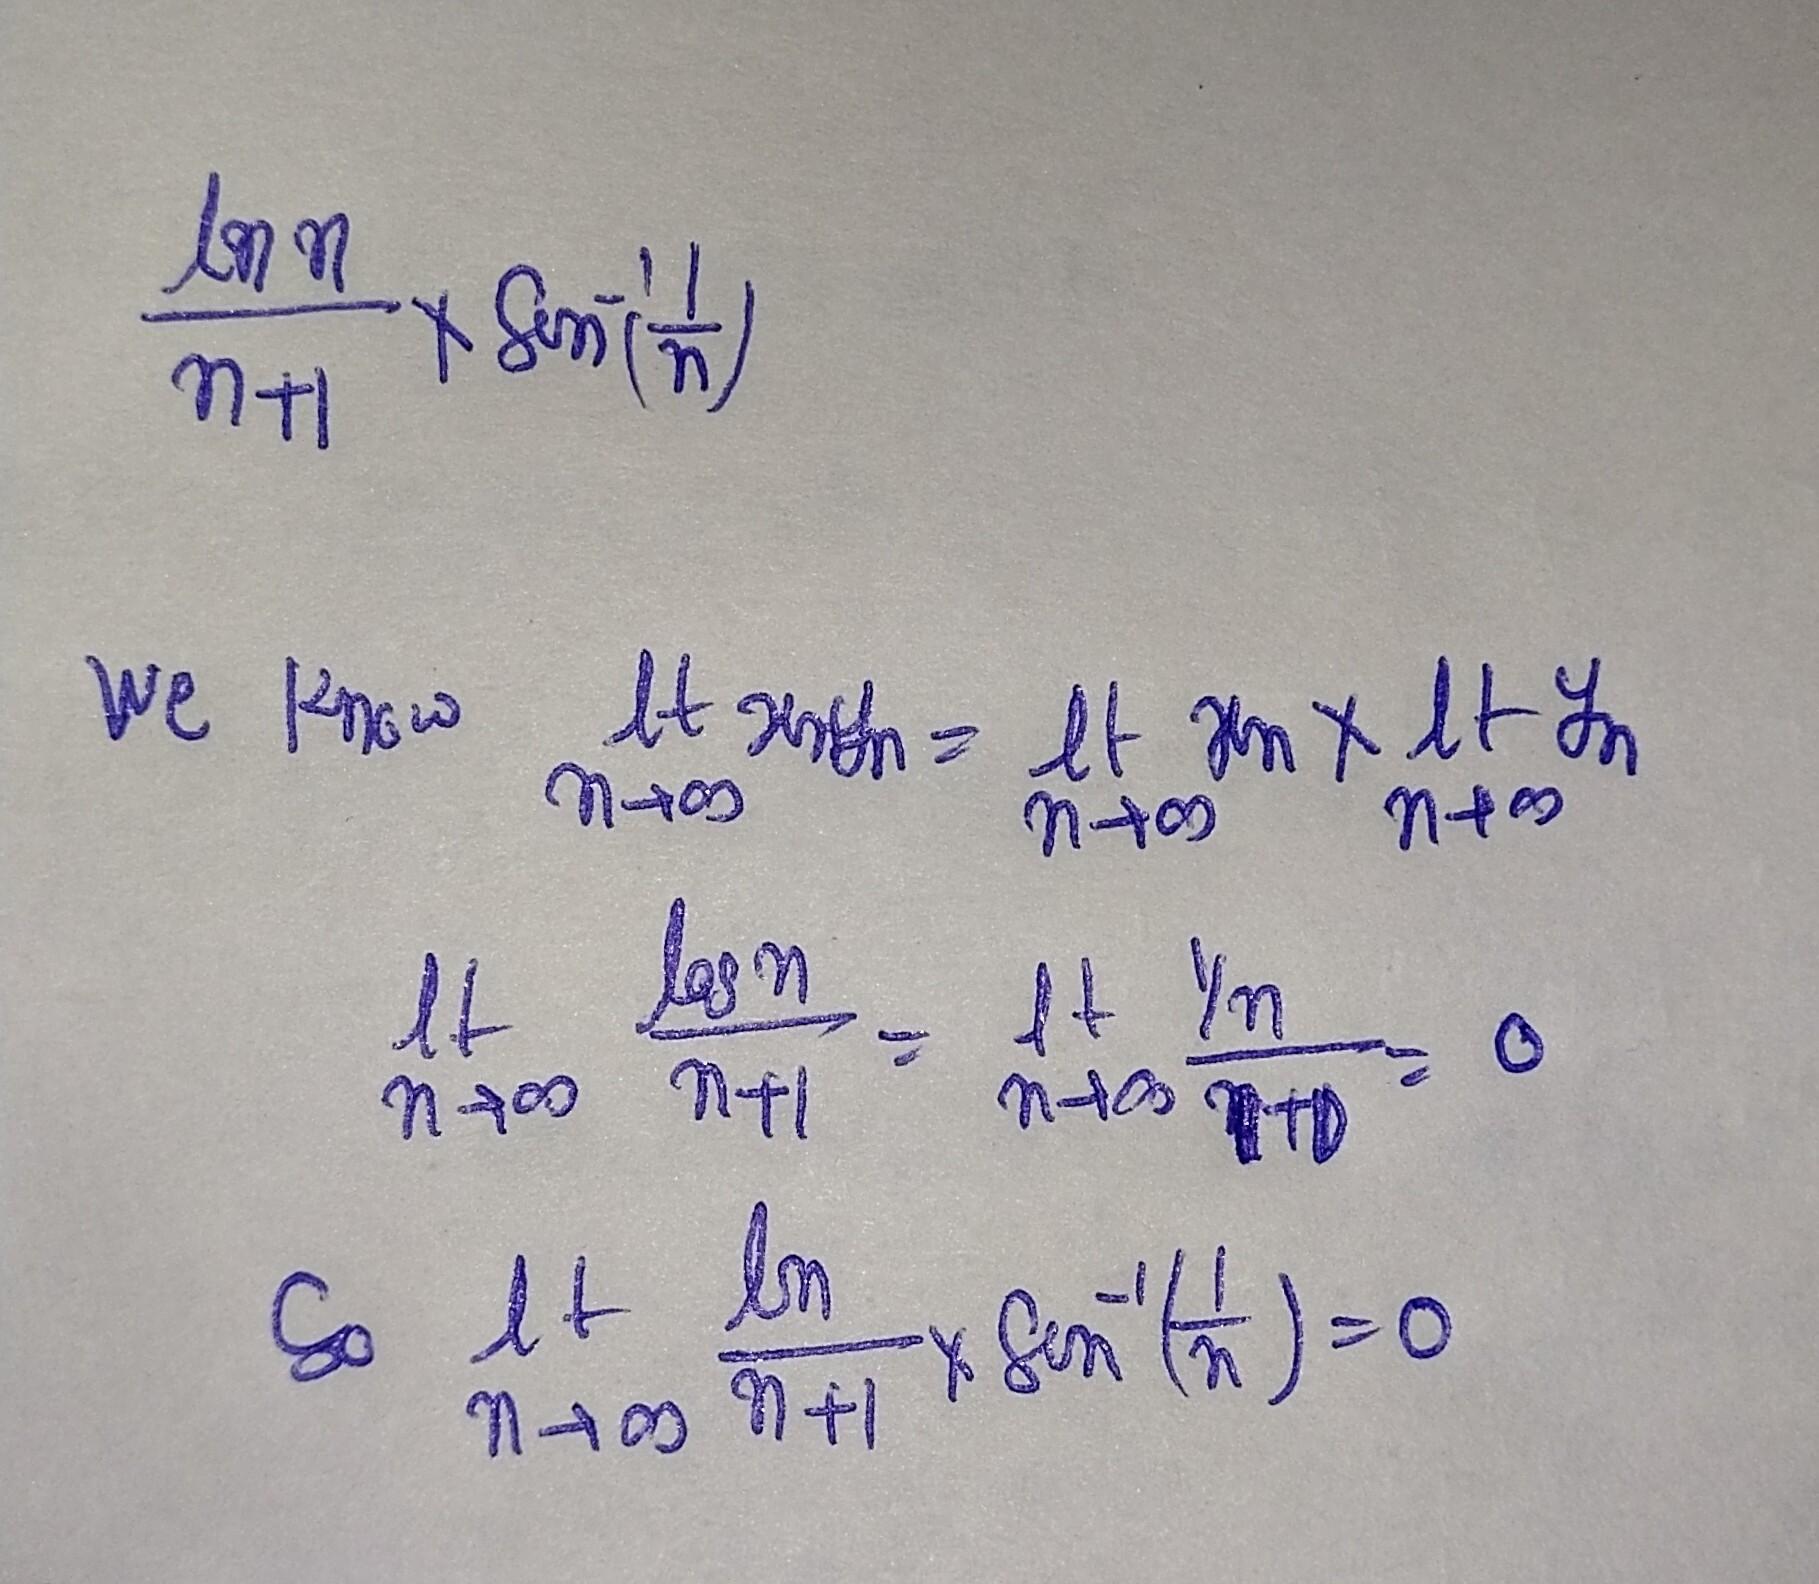 ln n / n+1 × Sin⁻¹(1/n)
We Know lt n→∞ xnyn = lt n→∞ xn × lt n→∞ yn
lt n→∞ log n / n+1 = lt n→∞ 1/n / = 0
So lt n→∞ ln / n+1 × Sin⁻¹(1/n) = 0